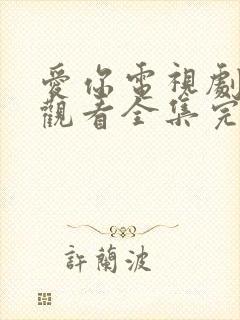 愛你電視劇
觀看全集完
許蘭波